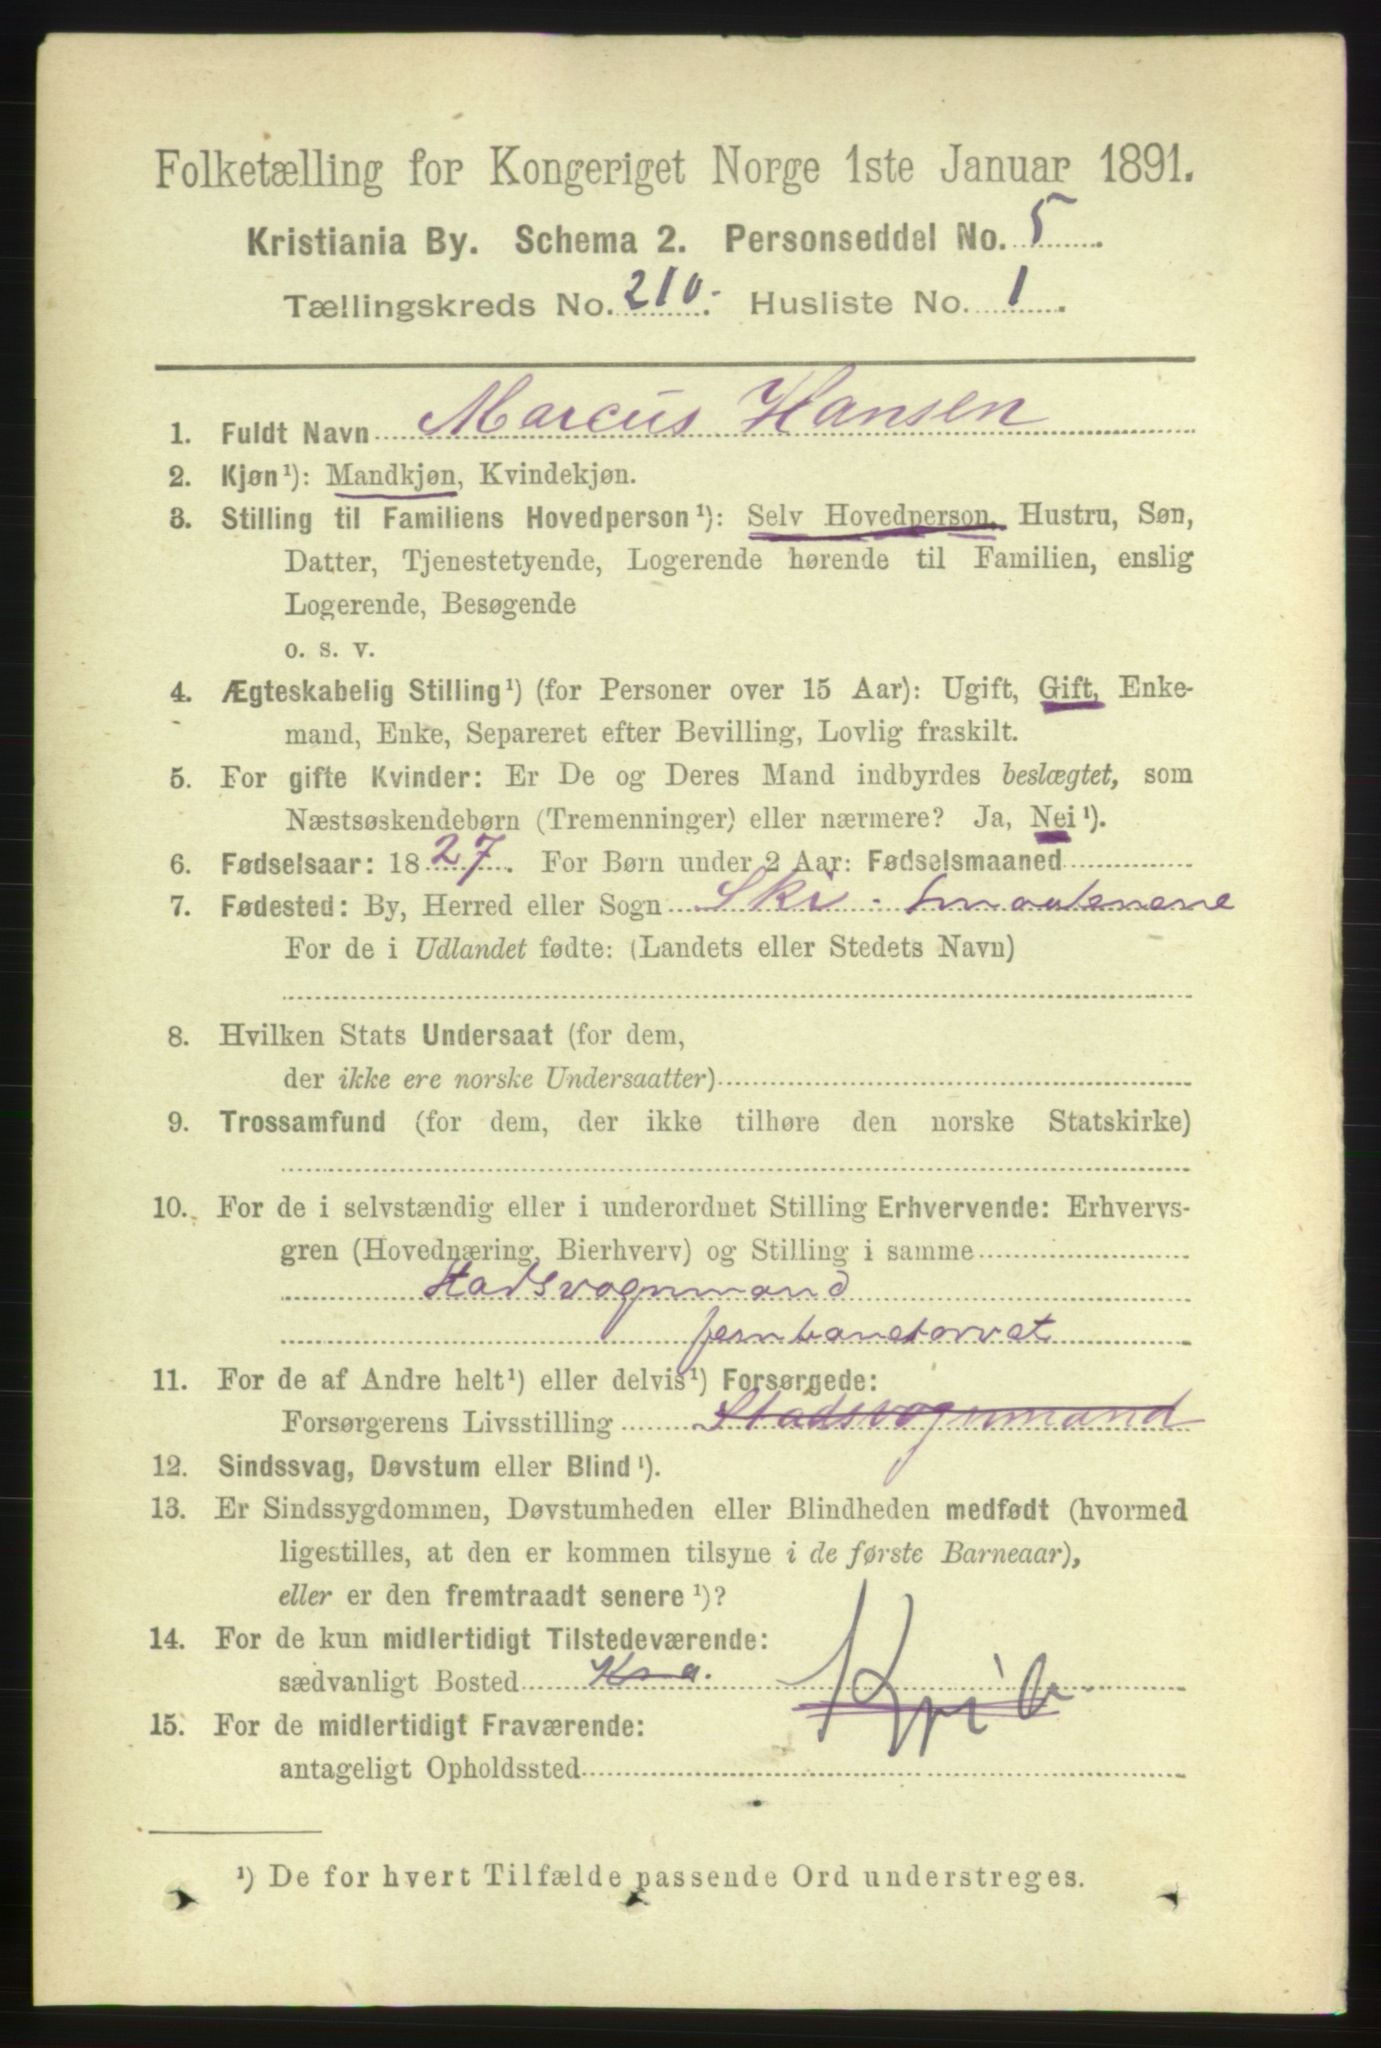 Folketælling for Kongeriget Norge 1ste Januar 1891.
Kristiania By. Schema 2. Personseddel No. 5
Tællingskreds No. 210. Husliste No. 1
1. Fuldt Navn Marcus Hansen
2. Kjøn¹): Mandkjøn, Kvindekjøn.
3. Stilling til Familiens Hovedperson¹): Selv Hovedperson, Hustru, Søn,
Datter, Tjenestetyende, Logerende hørende til Familien, enslig
Logerende, Besøgende
o. s. v.
4. Ægteskabelig Stilling¹) (for Personer over 15 Aar): Ugift, Gift, Enke-
mand, Enke, Separeret efter Bevilling, Lovlig fraskilt.
5. For gifte Kvinder: Er De og Deres Mand indbyrdes beslægtet, som
Næstsøskendebørn (Tremenninger) eller nærmere? Ja, Nei¹).
6. Fødselsaar: 1827. For Børn under 2 Aar: Fødselsmaaned
7. Fødested: By, Herred eller Sogn Ski - Smaalenene
For de i Udlandet fødte: (Landets eller Stedets Navn)
8. Hvilken Stats Undersaat (for dem,
der ikke ere norske Undersaatter)
9. Trossamfund (for dem, der ikke tilhøre den norske Statskirke)
10. For de i selvstændig eller i underordnet Stilling Erhvervende: Erhvervs-
gren (Hovednæring, Bierhverv) og Stilling i samme
Stadsvognmand
jernbanetorvet
11. For de af Andre helt¹) eller delvis¹) Forsørgede:
Forsørgerens Livsstilling Stadsvognmand
12. Sindssvag, Døvstum eller Blind¹).
13. Er Sindssygdommen, Døvstumheden eller Blindheden medfødt (hvormed
ligestilles, at den er kommen tilsyne i de første Barneaar),
eller er den fremtraadt senere¹)?
14. For de kun midlertidigt Tilstedeværende:
sædvanligt Bosted Kra.
15. For de midlertidigt Fraværende:
antageligt Opholdssted
¹) De for hvert Tilfælde passende Ord understreges.